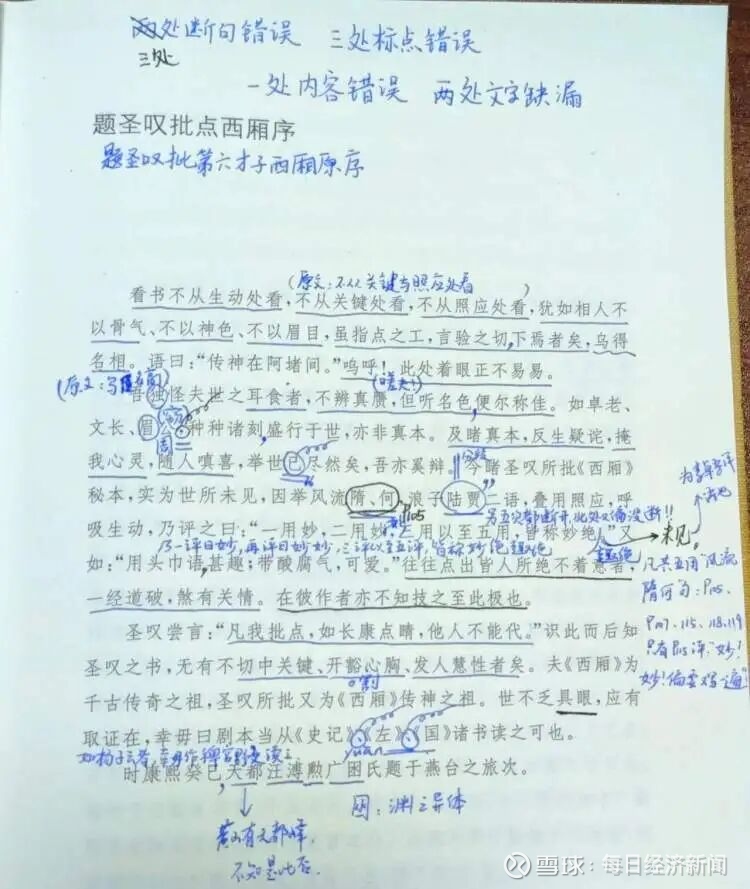 两处断句错误 三处标点错误
三处
一处内容错误 两处文字缺漏
题圣叹批点西厢序
题圣叹批第六才子西厢原序
(原文:不从关键与照应处看)
看书不从生动处看,不从关键处看,不从照应处看,犹如相人不
以骨气、不以神色、不以眉目,虽指点之工,言验之切下焉者矣,乌得
名相。语曰:“传神在阿堵间。”呜呼!此处着眼正不易易。
吾独怪夫世之耳食者,不辨真赝,但听名色便尔称佳。如卓老、
文长、眉公种种诸刻盛行于世,亦非真本。及睹真本,反生疑诧,掩
我心灵,随人嗔喜,举世已尽然矣,吾亦奚辩。今睹圣叹所批《西厢》
秘本,实为世所未见,因举风流隋、何,浪子陆贾二语,叠用照应,呼
P105
另五次都断开,此处又偏没断!!
吸生动,乃评之曰:“一用妙,二用妙,三用以至五用,皆称妙绝”又
乃一评曰妙,再评曰妙妙,三评以至五评,皆称妙绝趣绝
趣绝
未见
如:“用头巾语甚趣;带酸腐气,可爱。”往往点出皆人所绝不着意者,
一经道破,煞有关情。在彼作者亦不知技之至此极也。
凡共五用“风流
隋何”句:P105、
P107、115、118、119
只有P115评“妙!
妙!偏要写遍”
圣叹尝言:“凡我批点,如长康点睛,他人不能代。”识此而后知
圣叹之书,无有不切中关键、开豁心胸、发人慧性者矣。夫《西厢》为
割
千古传奇之祖,圣叹所批又为《西厢》传神之祖。世不乏具眼,应有
取证在,幸毋曰剧本当从《史记》《左》《国》诸书读之可也。
yuān
时康熙癸巳天都汪溥勲广囦氏题于燕台之旅次。
囦:渊之异体
黄山有天都峰
不知是此否.
雪球:每日经济新闻